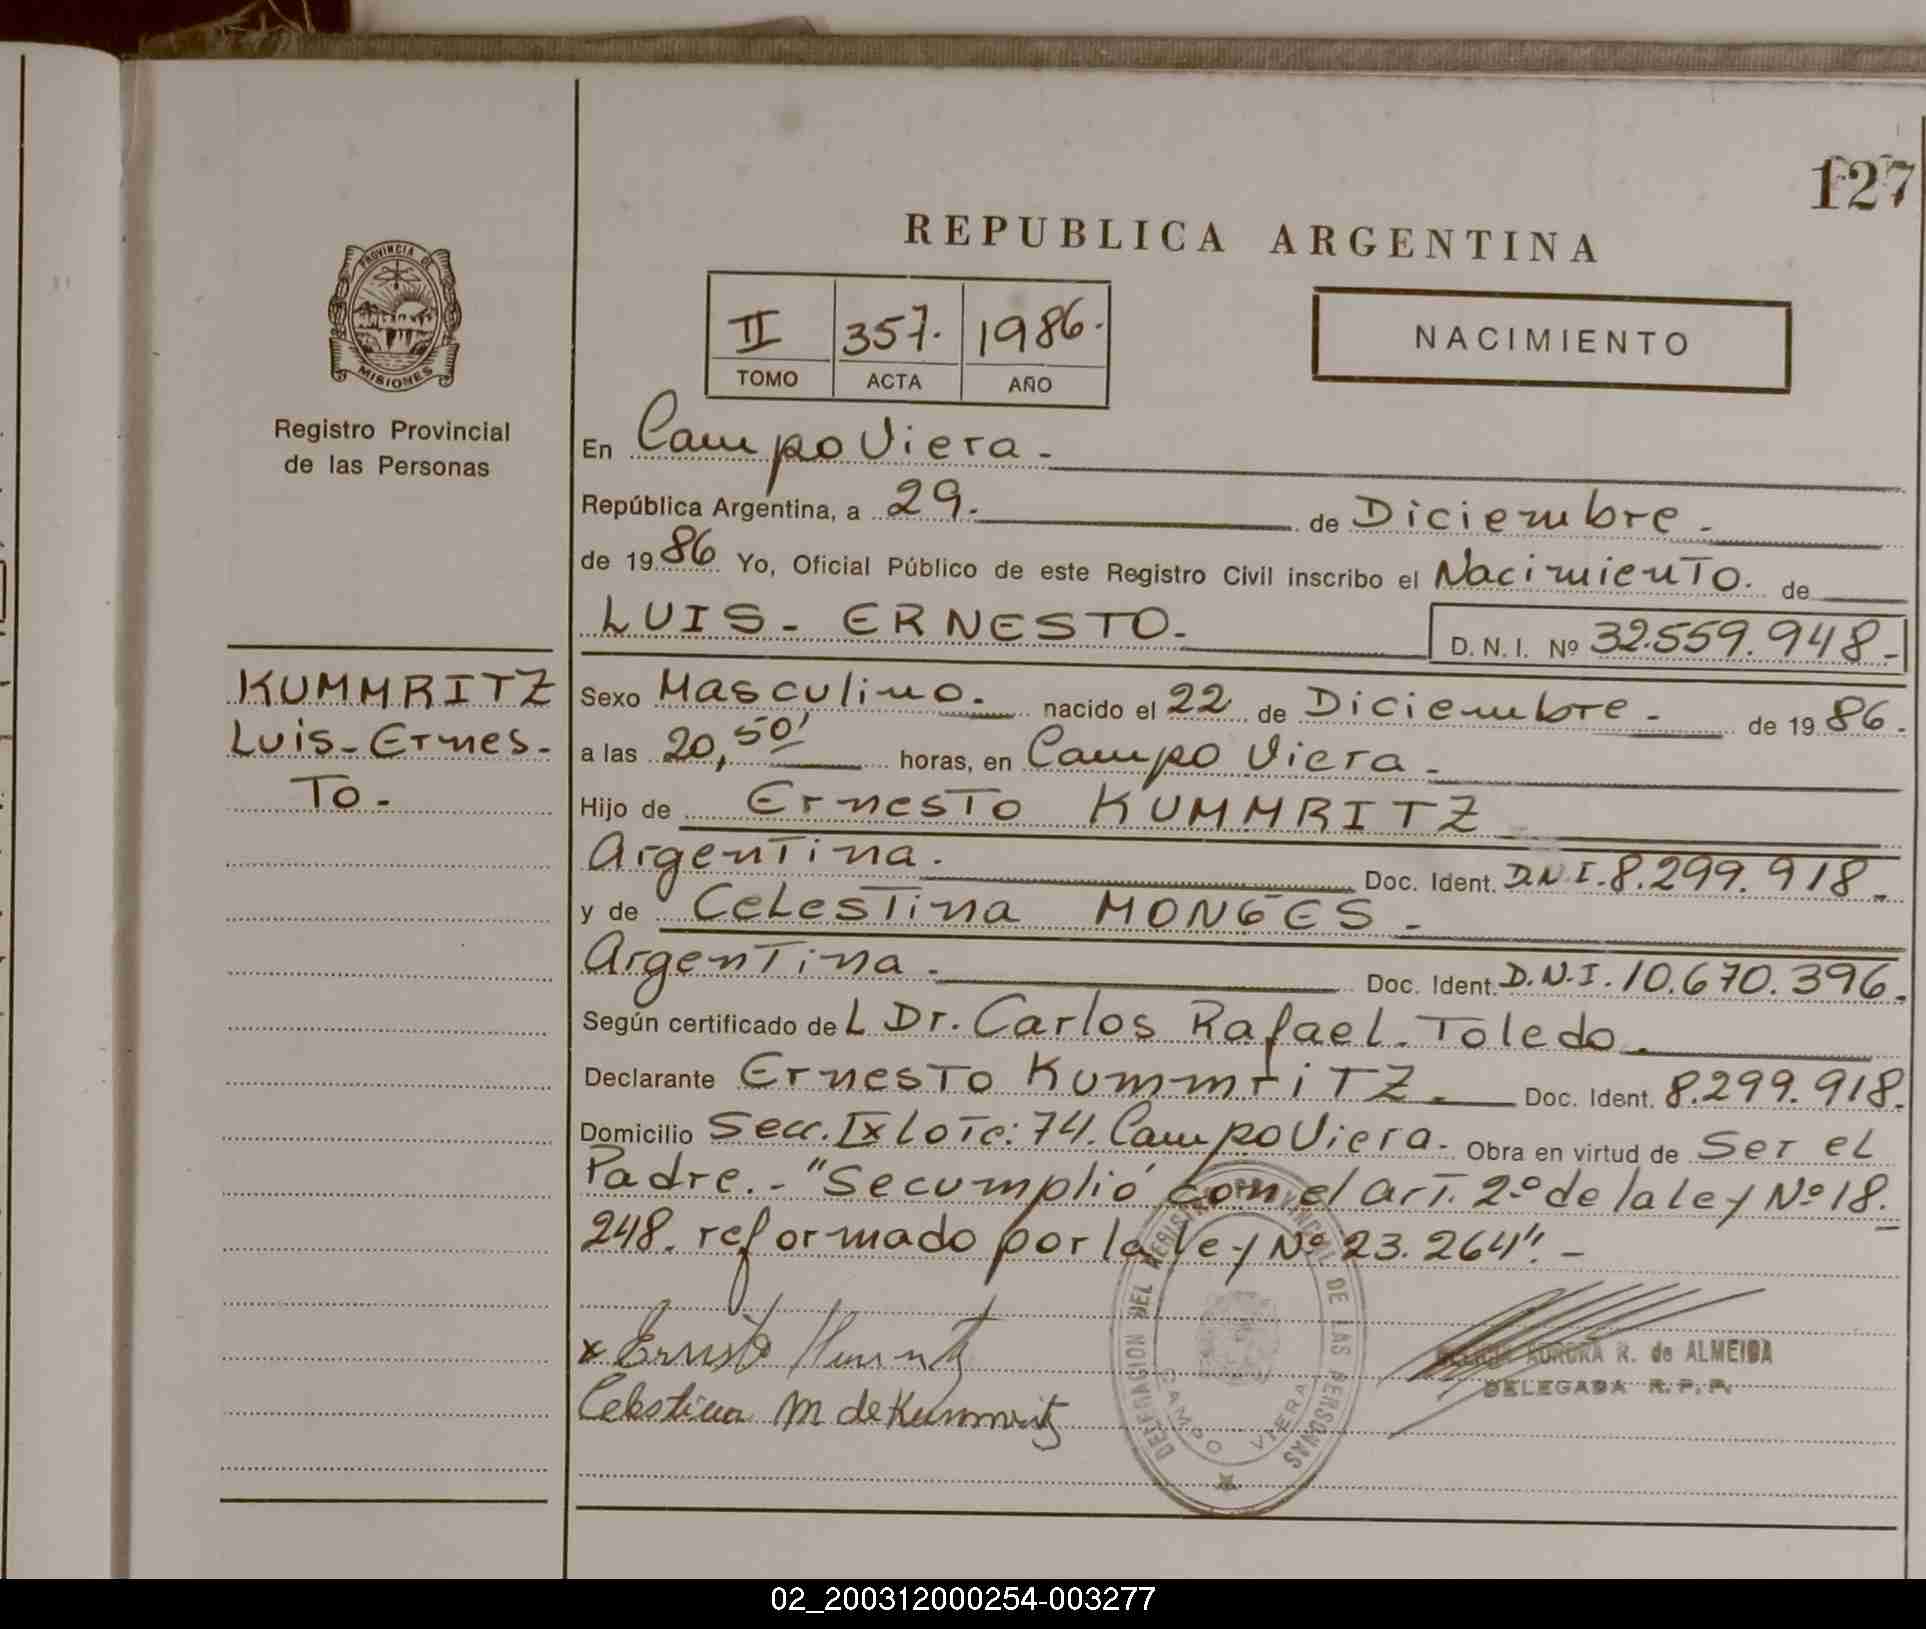 127
REPUBLICA ARGENTINA
PROVINCIA DE
MISIONES
Registro Provincial
de las Personas
II 357. 1986.
TOMO ACTA AÑO
NACIMIENTO
En Campo Viera.
República Argentina, a 29. de Diciembre.
de 1986 Yo, Oficial Público de este Registro Civil inscribo el Nacimiento. de
LUIS - ERNESTO. D. N. I. Nº 32.559.948-
KUMMRITZ
Luis-Ernes-
To-
Sexo Masculino. nacido el 22 de Diciembre. de 1986.
a las 20,50' horas, en Campo Viera.
Hijo de Ernesto KUMMRITZ
Argentina. Doc. Ident. D.N.I. 8.299.918.
y de Celestina MONGES.
Argentina. Doc. Ident. D.N.I. 10.670.396.
Según certificado del Dr. Carlos Rafael Toledo.
Declarante Ernesto Kummritz. Doc. Ident. 8.299.918.
Domicilio Secc. IX Lote: 74. Campo Viera. Obra en virtud de Ser el
Padre.- "Se cumplió con el art. 2º de la ley Nº 18.
248. reformado por la ley Nº 23.264".-
x Ernesto Kummritz
Celestina M de Kummritz
DELEGACION DEL REGISTRO PROVINCIAL DE LAS PERSONAS
CAMPO VIERA
AURORA R. de ALMEIDA
DELEGADA R. P. P.
02_200312000254-003277